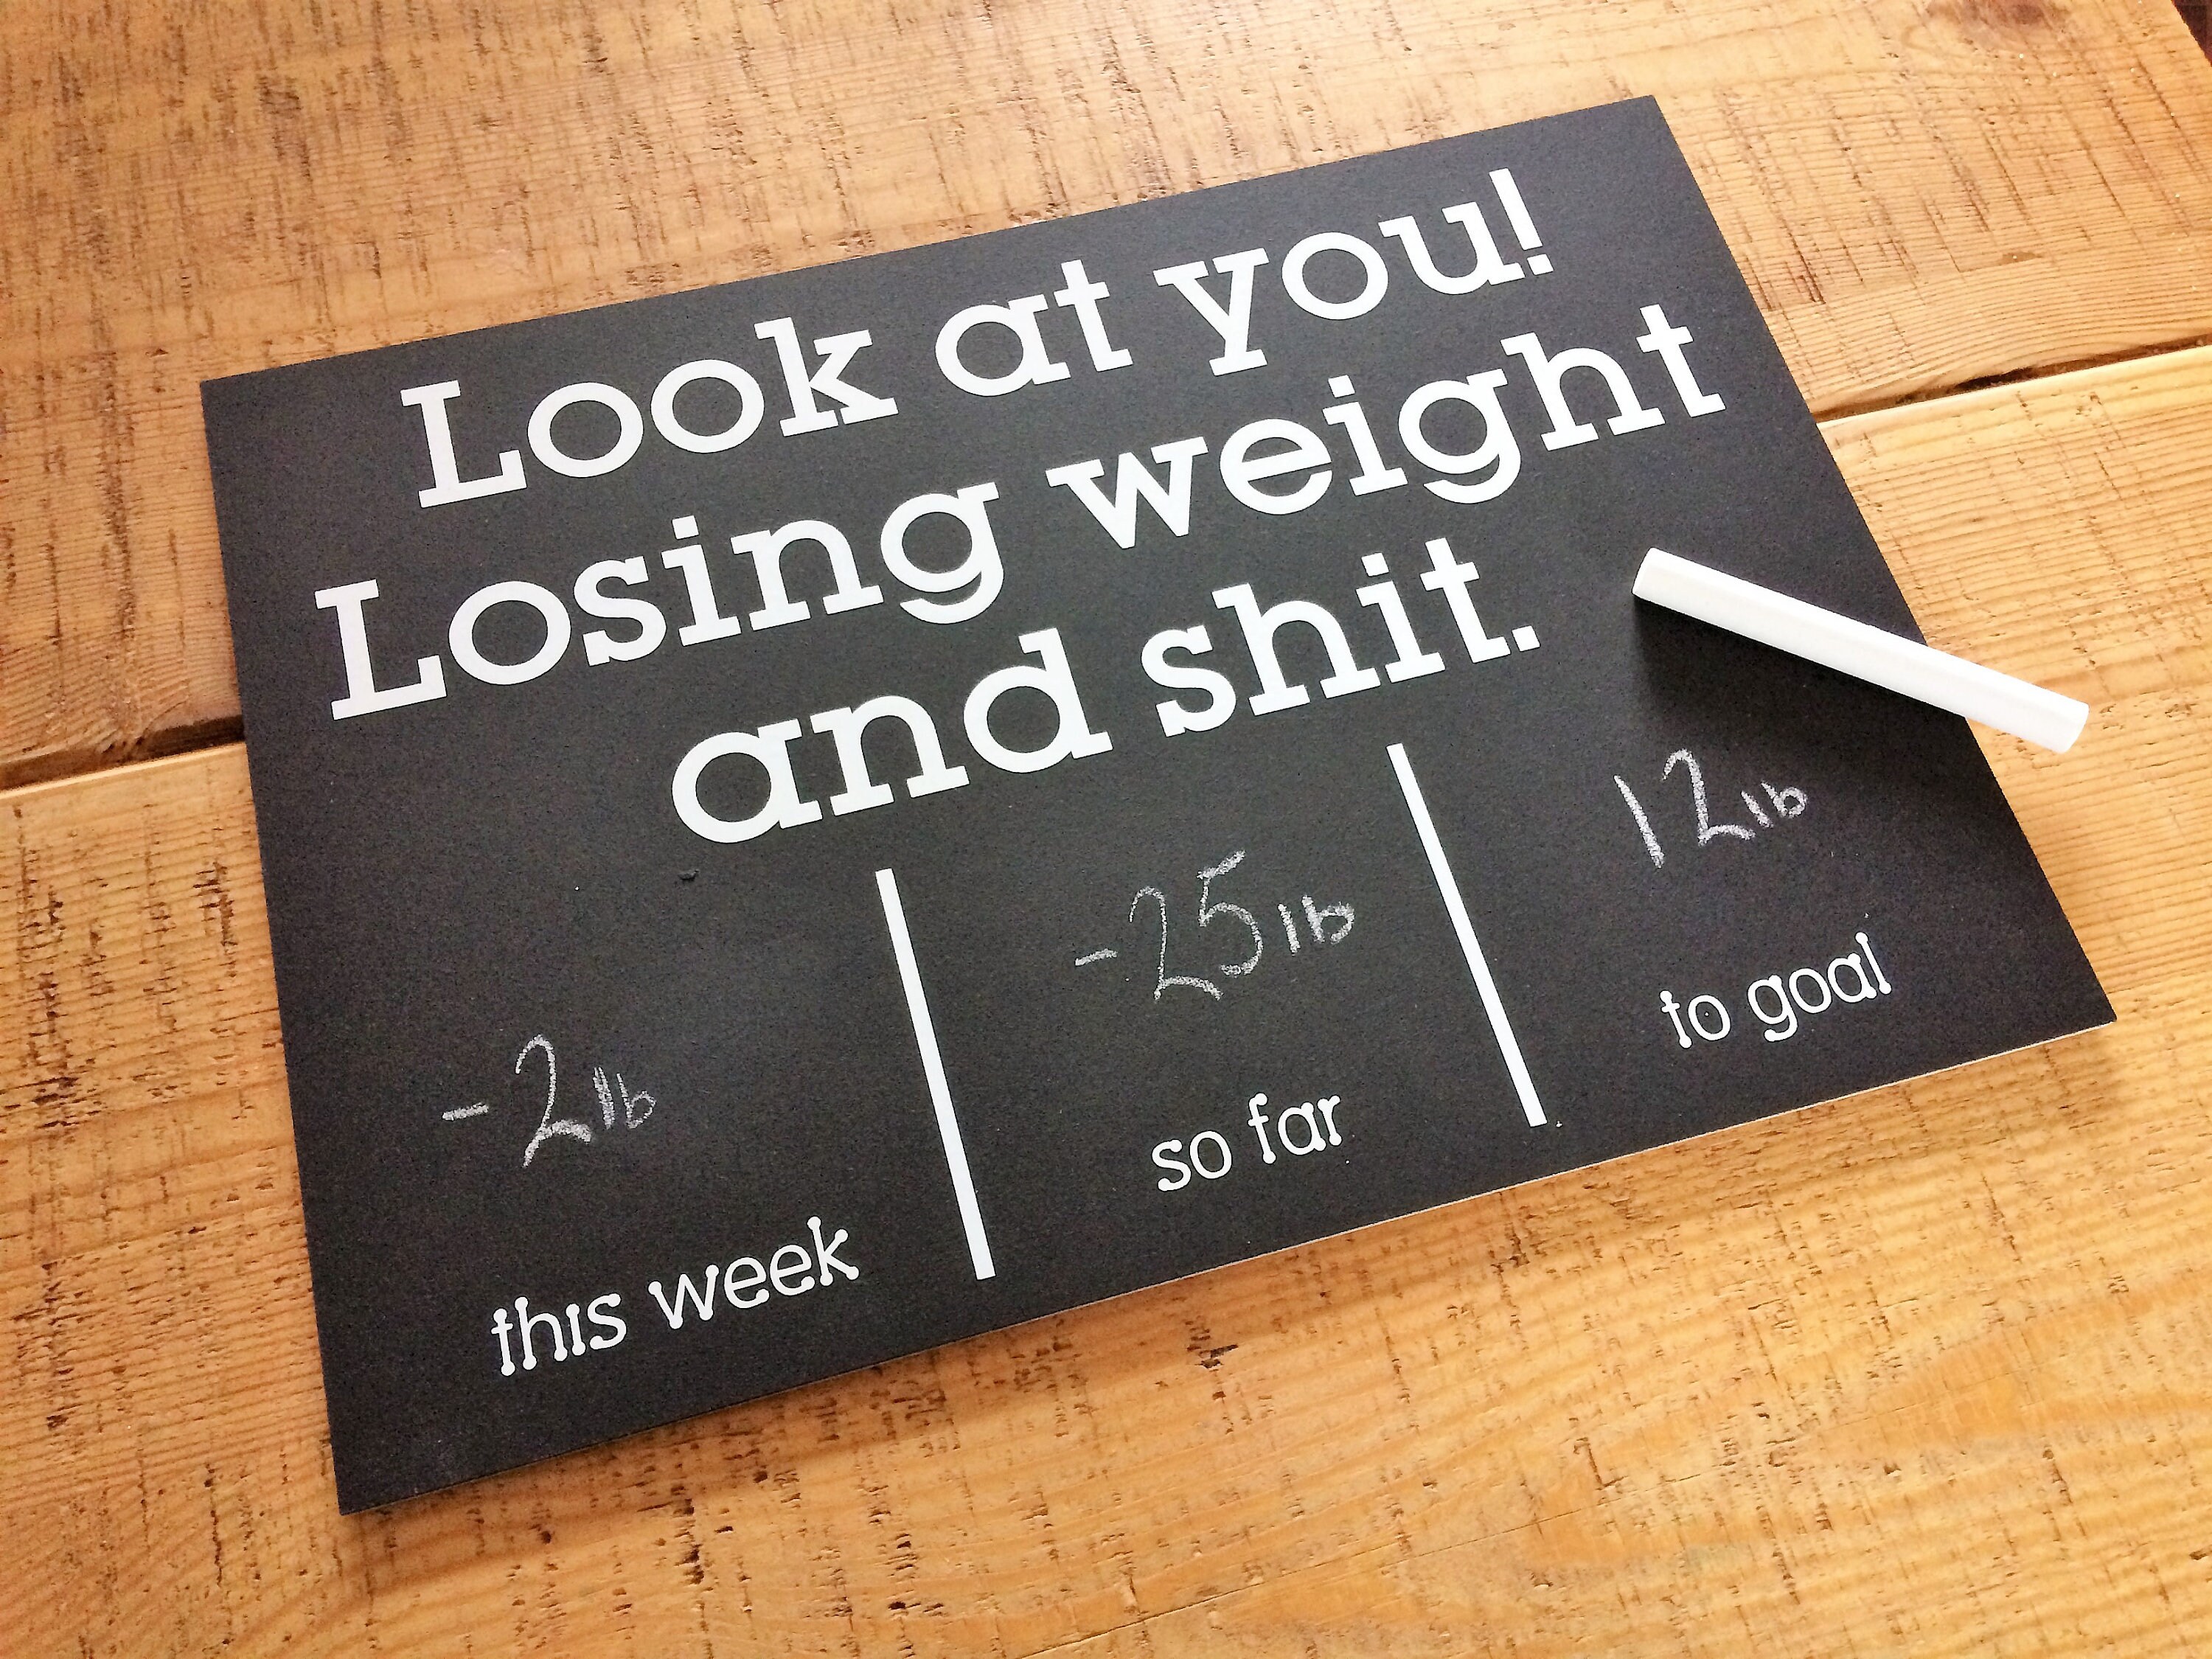 Look at you!
Losing weight
and shit.
-2lb
this week
-25lb
so far
12lb
to goal